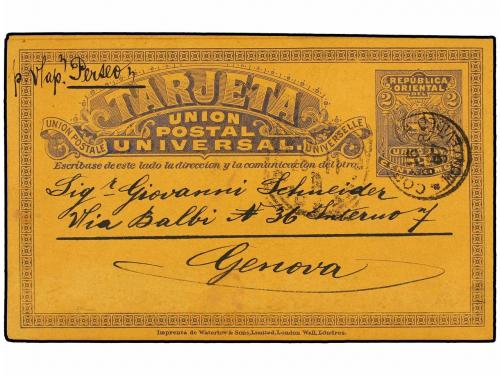 p. Vap. "Perseo"
TARJETA
UNION
POSTAL
UNIVERSAL.
UNION POSTALE
UNIVERSELLE
REPÚBLICA
ORIENTAL
DEL
2 2
Escribase de este lado la direccion y la comunicacion del otro.
Sigr Giovanni Schneider
Via Balbi N 36 Interno 7
Genova
Imprenta de Waterlow & Sons, Limited, London Wall, Lóndres.